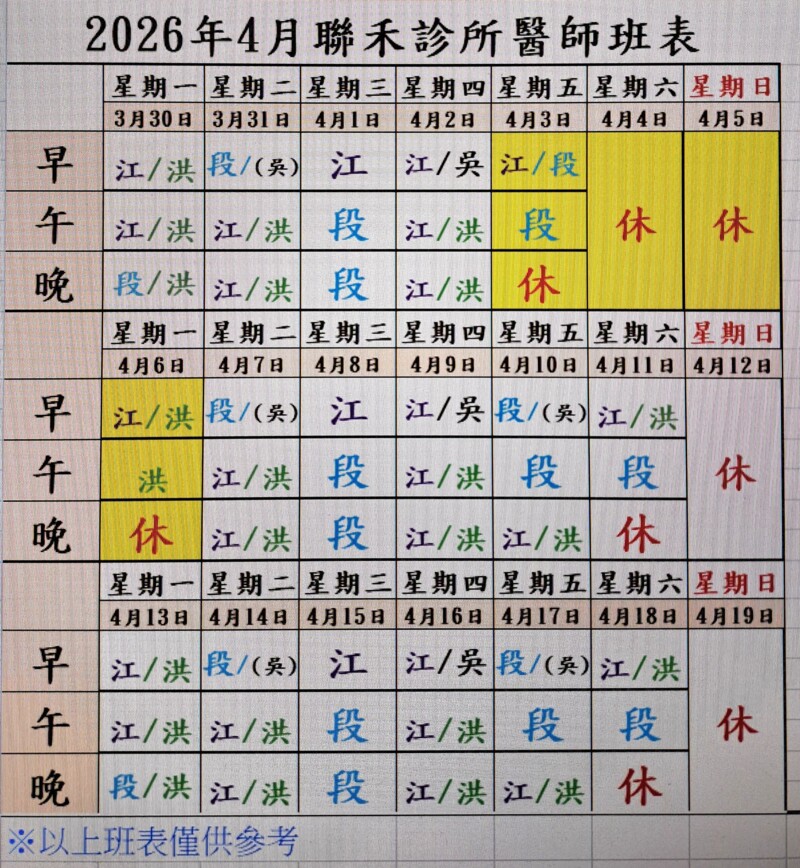 2026年4月聯禾診所醫師班表
星期一 星期二 星期三 星期四 星期五 星期六 星期日
3月30日 3月31日 4月1日 4月2日 4月3日 4月4日 4月5日
早 江/洪 段/(吳) 江 江/吳 江/段
午 江/洪 江/洪 段 江/洪 段 休 休
晚 段/洪 江/洪 段 江/洪 休
星期一 星期二 星期三 星期四 星期五 星期六 星期日
4月6日 4月7日 4月8日 4月9日 4月10日 4月11日 4月12日
早 江/洪 段/(吳) 江 江/吳 段/(吳) 江/洪
午 洪 江/洪 段 江/洪 段 段 休
晚 休 江/洪 段 江/洪 江/洪 休
星期一 星期二 星期三 星期四 星期五 星期六 星期日
4月13日 4月14日 4月15日 4月16日 4月17日 4月18日 4月19日
早 江/洪 段/(吳) 江 江/吳 段/(吳) 江/洪
午 江/洪 江/洪 段 江/洪 段 段 休
晚 段/洪 江/洪 段 江/洪 江/洪 休
※以上班表僅供參考